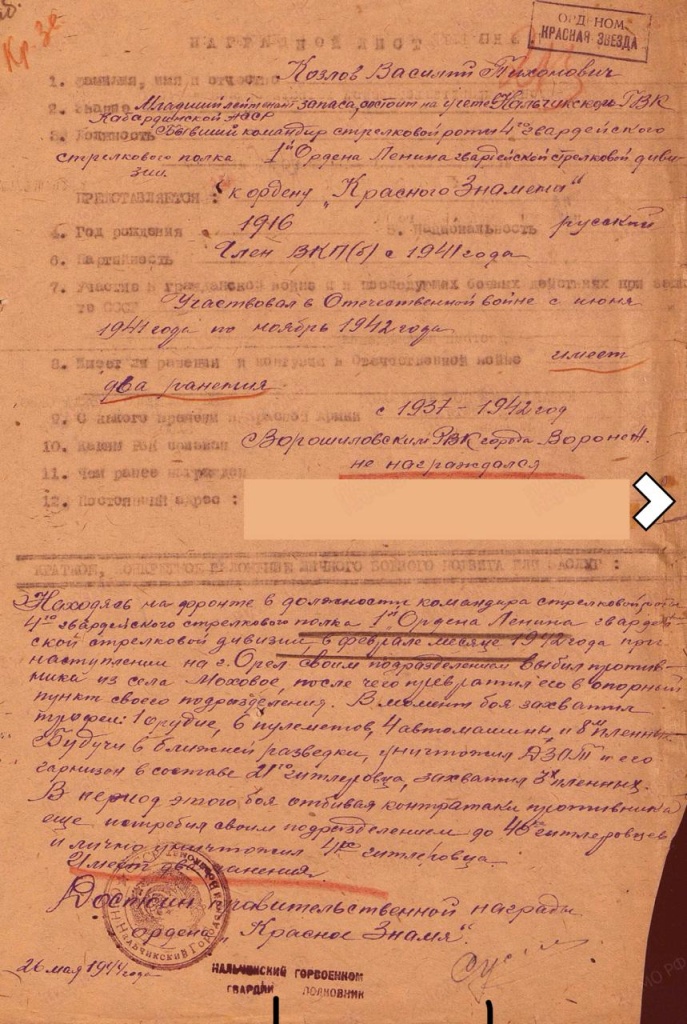 ОРДЕНОМ
КРАСНАЯ ЗВЕЗДА
НАГРАДНОЙ ЛИСТ
1. Фамилия, имя и отчество Козлов Василий Тихонович
2. Звание Младший лейтенант запаса, состоит на учете Нальчикского ГВК
Кабардинской АССР
3. Должность Бывший командир стрелковой роты 4го гвардейского
стрелкового полка 1й Ордена Ленина гвардейской стрелковой диви-
зии.
ПРЕДСТАВЛЯЕТСЯ: к ордену „Красного Знамени"
4. Год рождения 1916 5. Национальность русский
6. Партийность Член ВКП(б) с 1941 года
7. Участие в гражданской войне и в последующих боевых действиях при
те СССР Участвовал в Отечественной войне с июня
1941 года по ноябрь 1942 года
8. Имеет ли ранения и контузии в Отечественной войне имеет
два ранения.
9. С какого времени в Красной Армии с 1937 - 1942 год
10. Каким РВК призван Ворошиловским РВК города Воронеж.
11. Чем ранее награжден не награждался
12. Постоянный адрес :
КРАТКОЕ, КОНКРЕТНОЕ ИЗЛОЖЕНИЕ ЛИЧНОГО БОЕВОГО ПОДВИГА ИЛИ ЗАСЛУГ :
Находясь на фронте в должности командира стрелковой роты
4го гвардейского стрелкового полка 1й Ордена Ленина гвардей-
ской стрелковой дивизии в феврале месяце 1942 года при
наступлении на г. Орел своим подразделением выбил против-
ника из села Моховое, после чего превратил его в опорный
пункт своего подразделения. В момент боя захватил
трофеи: 1 орудие, 6 пулеметов, 4 автомашины и 8м пленных
Будучи в ближней разведки, уничтожил ДЗОТ и его
гарнизон в составе 21го гитлеровца, захватил 3х пленных.
В период этого боя отбивая контратаки противника
еще истребил своим подразделением до 46 гитлеровцев
и лично уничтожил 4х гитлеровца.
Имеет два ранения.
Достоин правительственной награды
ордена „Красное Знамя".
26 мая 1944 года
НАЛЬЧИКСКИЙ ГОРВОЕНКОМ
ГВАРДИИ ПОЛКОВНИК